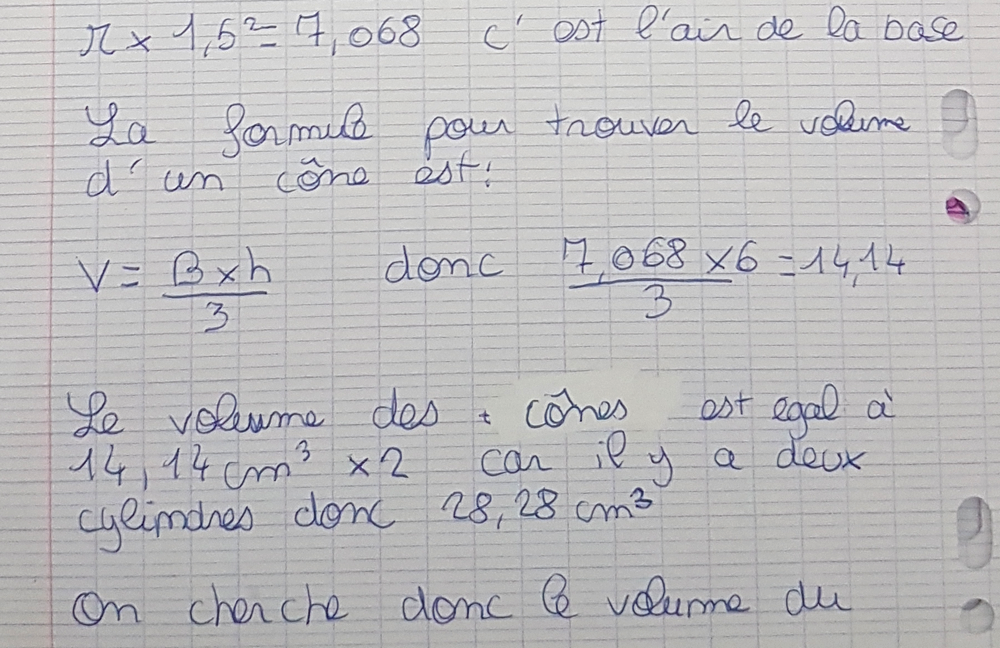 π × 1,5² = 7,068 c'est l'air de la base
La formule pour trouver le volume
d'un cône est:
V = B × h / 3 donc 7,068 × 6 / 3 = 14,14
Le volume des cônes est egal à
14,14 cm³ × 2 car il y a deux
cylindres donc 28,28 cm³
On cherche donc le volume du